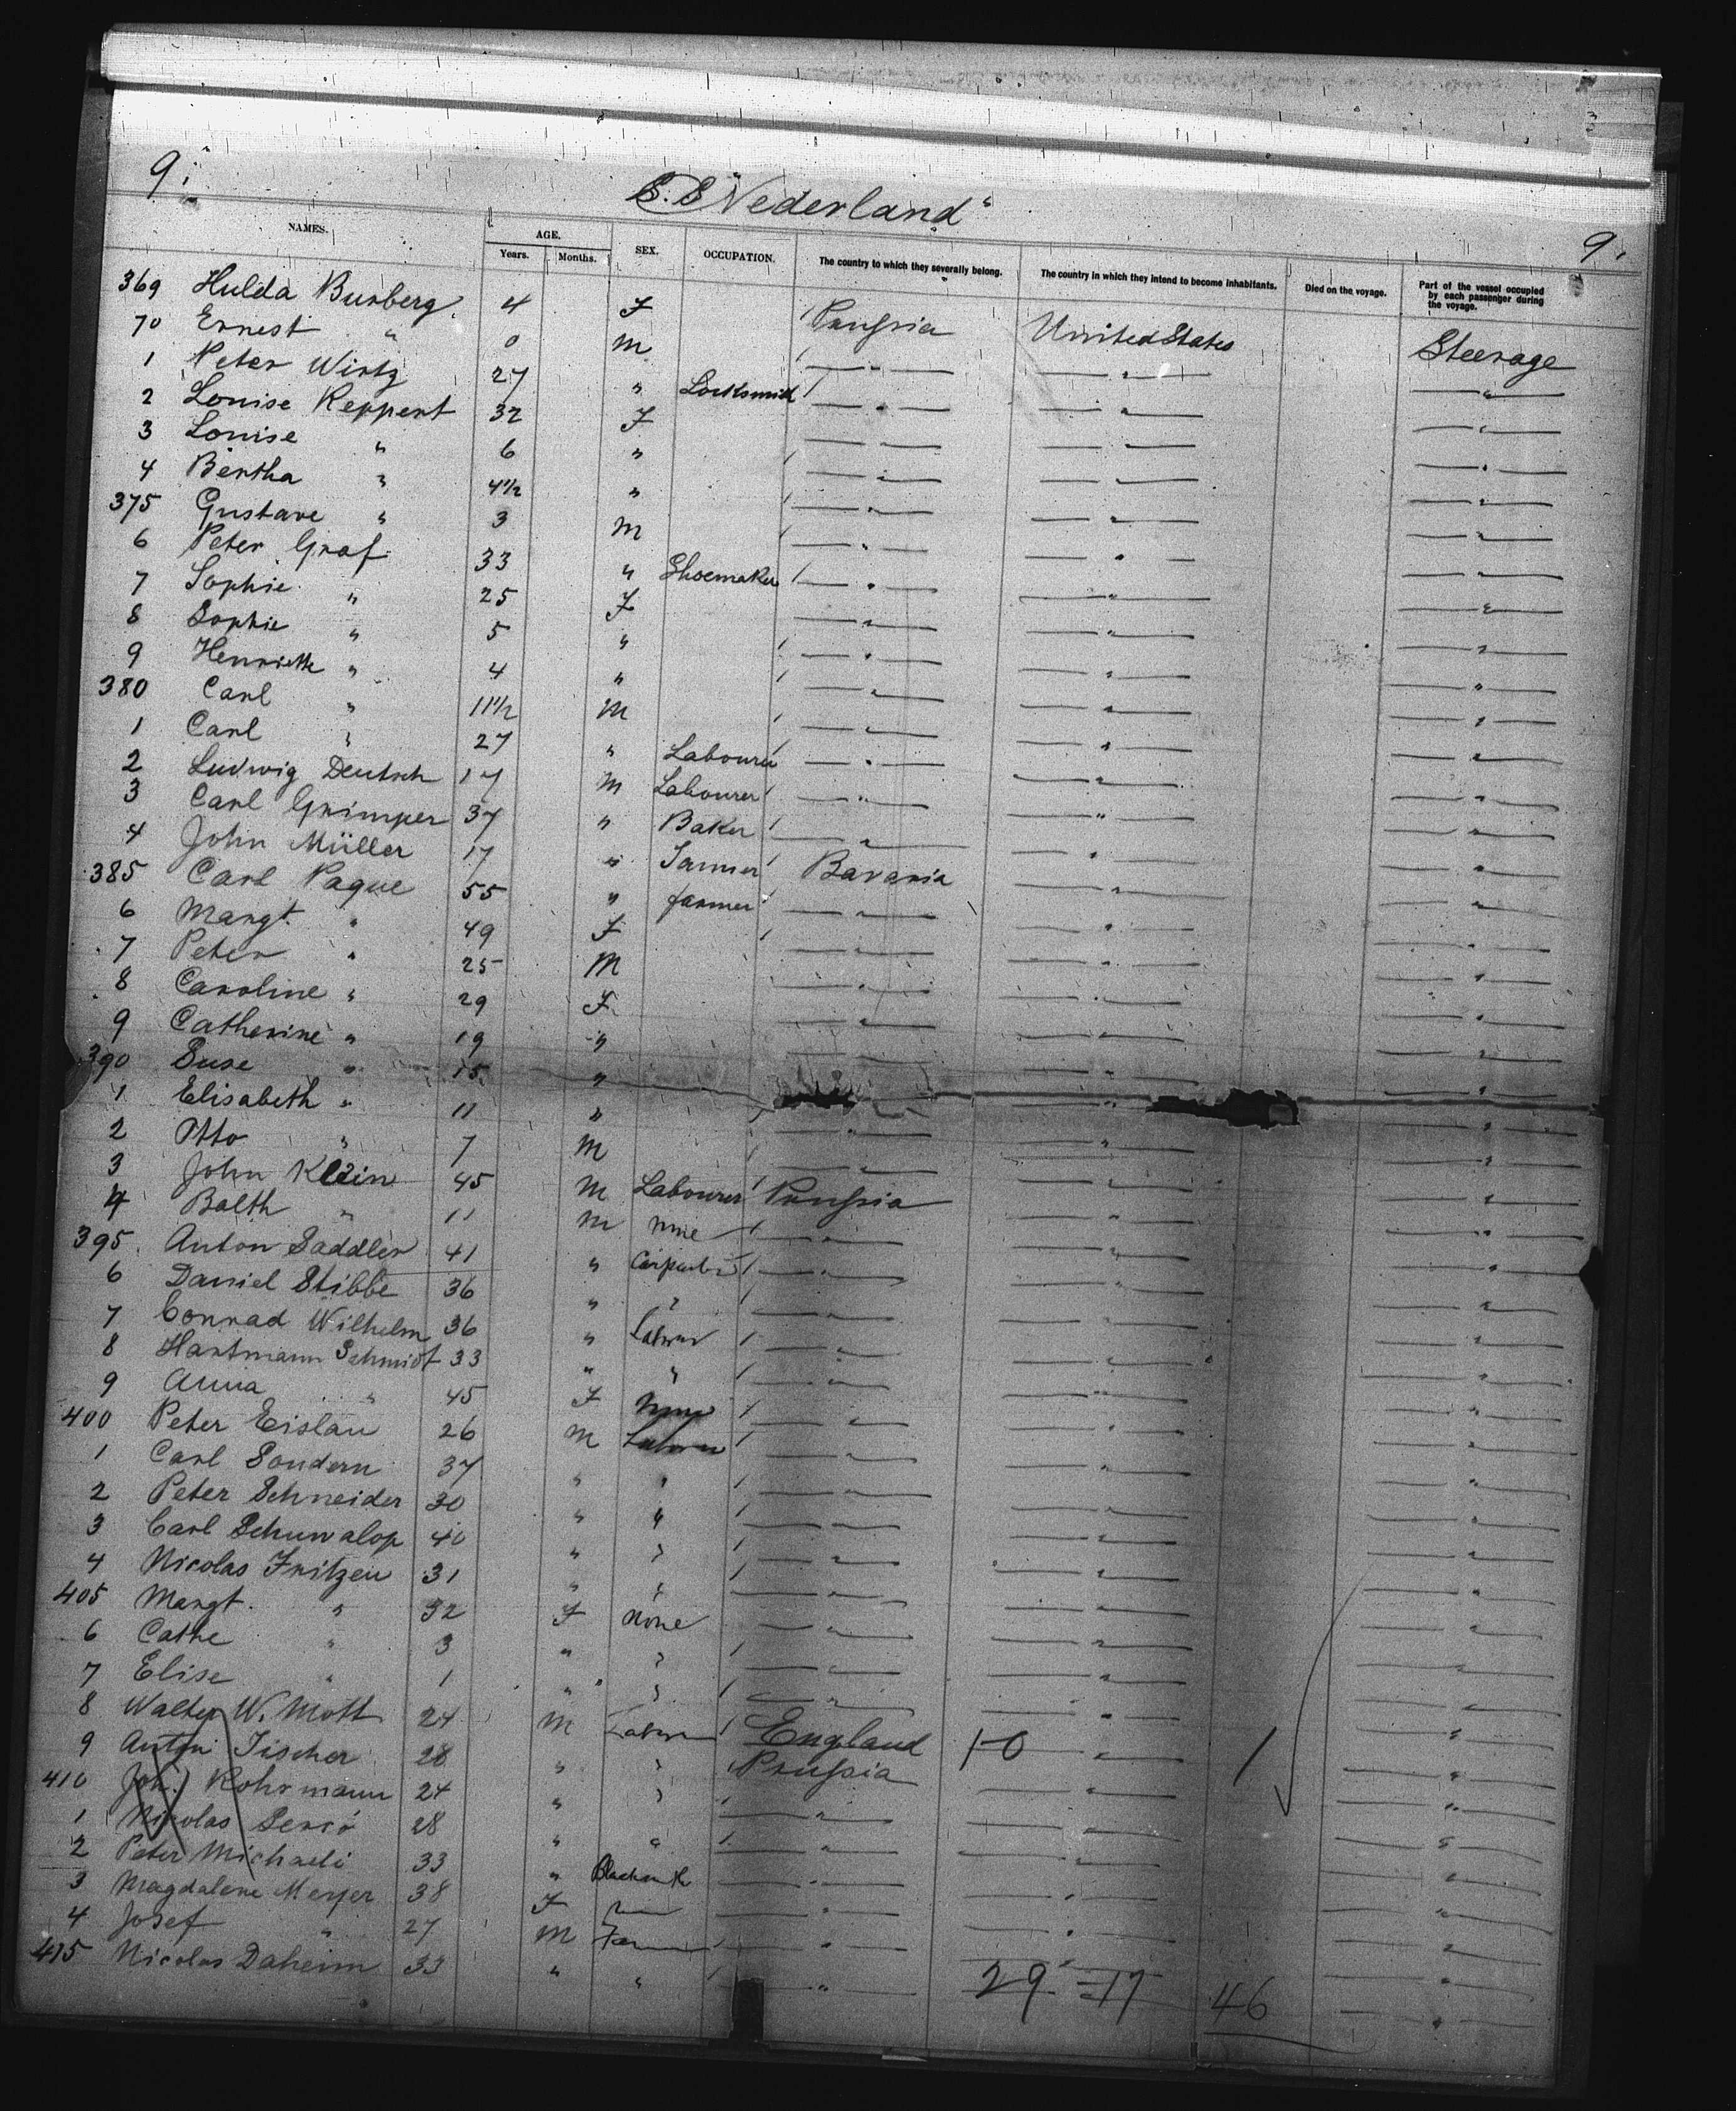 9. S.S "Nederland" 9.
NAMES. AGE. Years. Months. SEX. OCCUPATION. The country to which they severally belong. The country in which they intend to become inhabitants. Died on the voyage. Part of the vessel occupied by each passenger during the voyage.
369 Hulda Burberg 4 F Prussia United States Steerage
70 Ernest " 0 M " " "
1 Peter Wirtz 27 " Locksmith " " "
2 Louise Reppert 32 F " " "
3 Louise " 6 " " " "
4 Bertha " 4 1/2 " " " "
375 Gustave " 3 M " " "
6 Peter Graf 33 " Shoemaker " " "
7 Sophie " 25 F " " "
8 Sophie " 5 " " " "
9 Henriette " 4 " " " "
380 Carl " 11 1/2 M " " "
1 Carl " 27 " Labourer " " "
2 Ludwig Deutsch 17 M Labourer " " "
3 Carl Grimper 37 " Baker " " "
4 John Müller 17 " Farmer Bavaria " "
385 Carl Pague 55 " farmer " " "
6 Margt. " 49 F " " "
7 Peter " 25 M " " "
8 Caroline " 29 F " " "
9 Catherine " 19 " " " "
390 Suse " 15 " " " "
1 Elisabeth " 11 " " " "
2 Otto " 7 M " " "
3 John Klein 45 M Labourer Prussia " "
4 Balth " 11 M None " " "
395 Anton Saddler 41 " Carpenter " " "
6 Daniel Stibbe 36 " " " " "
7 Conrad Wilhelm 36 " Labourer " " "
8 Hartmann Schmidt 33 " " " " "
9 Anna " 45 F None " " "
400 Peter Eislau 26 M Labourer " " "
1 Carl Sondern 37 " " " " "
2 Peter Schneider 30 " " " " "
3 Carl Schuwalop 40 " " " " "
4 Nicolas Fritzen 31 " " " " "
405 Margt. " 32 F None " " "
6 Cathe " 3 " " " " "
7 Elise " 1 " " " " "
8 Walter W. Mott 24 M Labourer England 1-0 " 1 "
9 Anton Fischer 28 " " Prussia " "
410 Joh. Rohrmann 24 " " " " "
1 Nicolas 28 " " " " "
2 Peter Michaeli 33 " " " "
3 Magdalene Meyer 38 F " " "
4 Josef " 27 M " " "
415 Nicolas Daheim 33 " " " " "
29 = 17 46